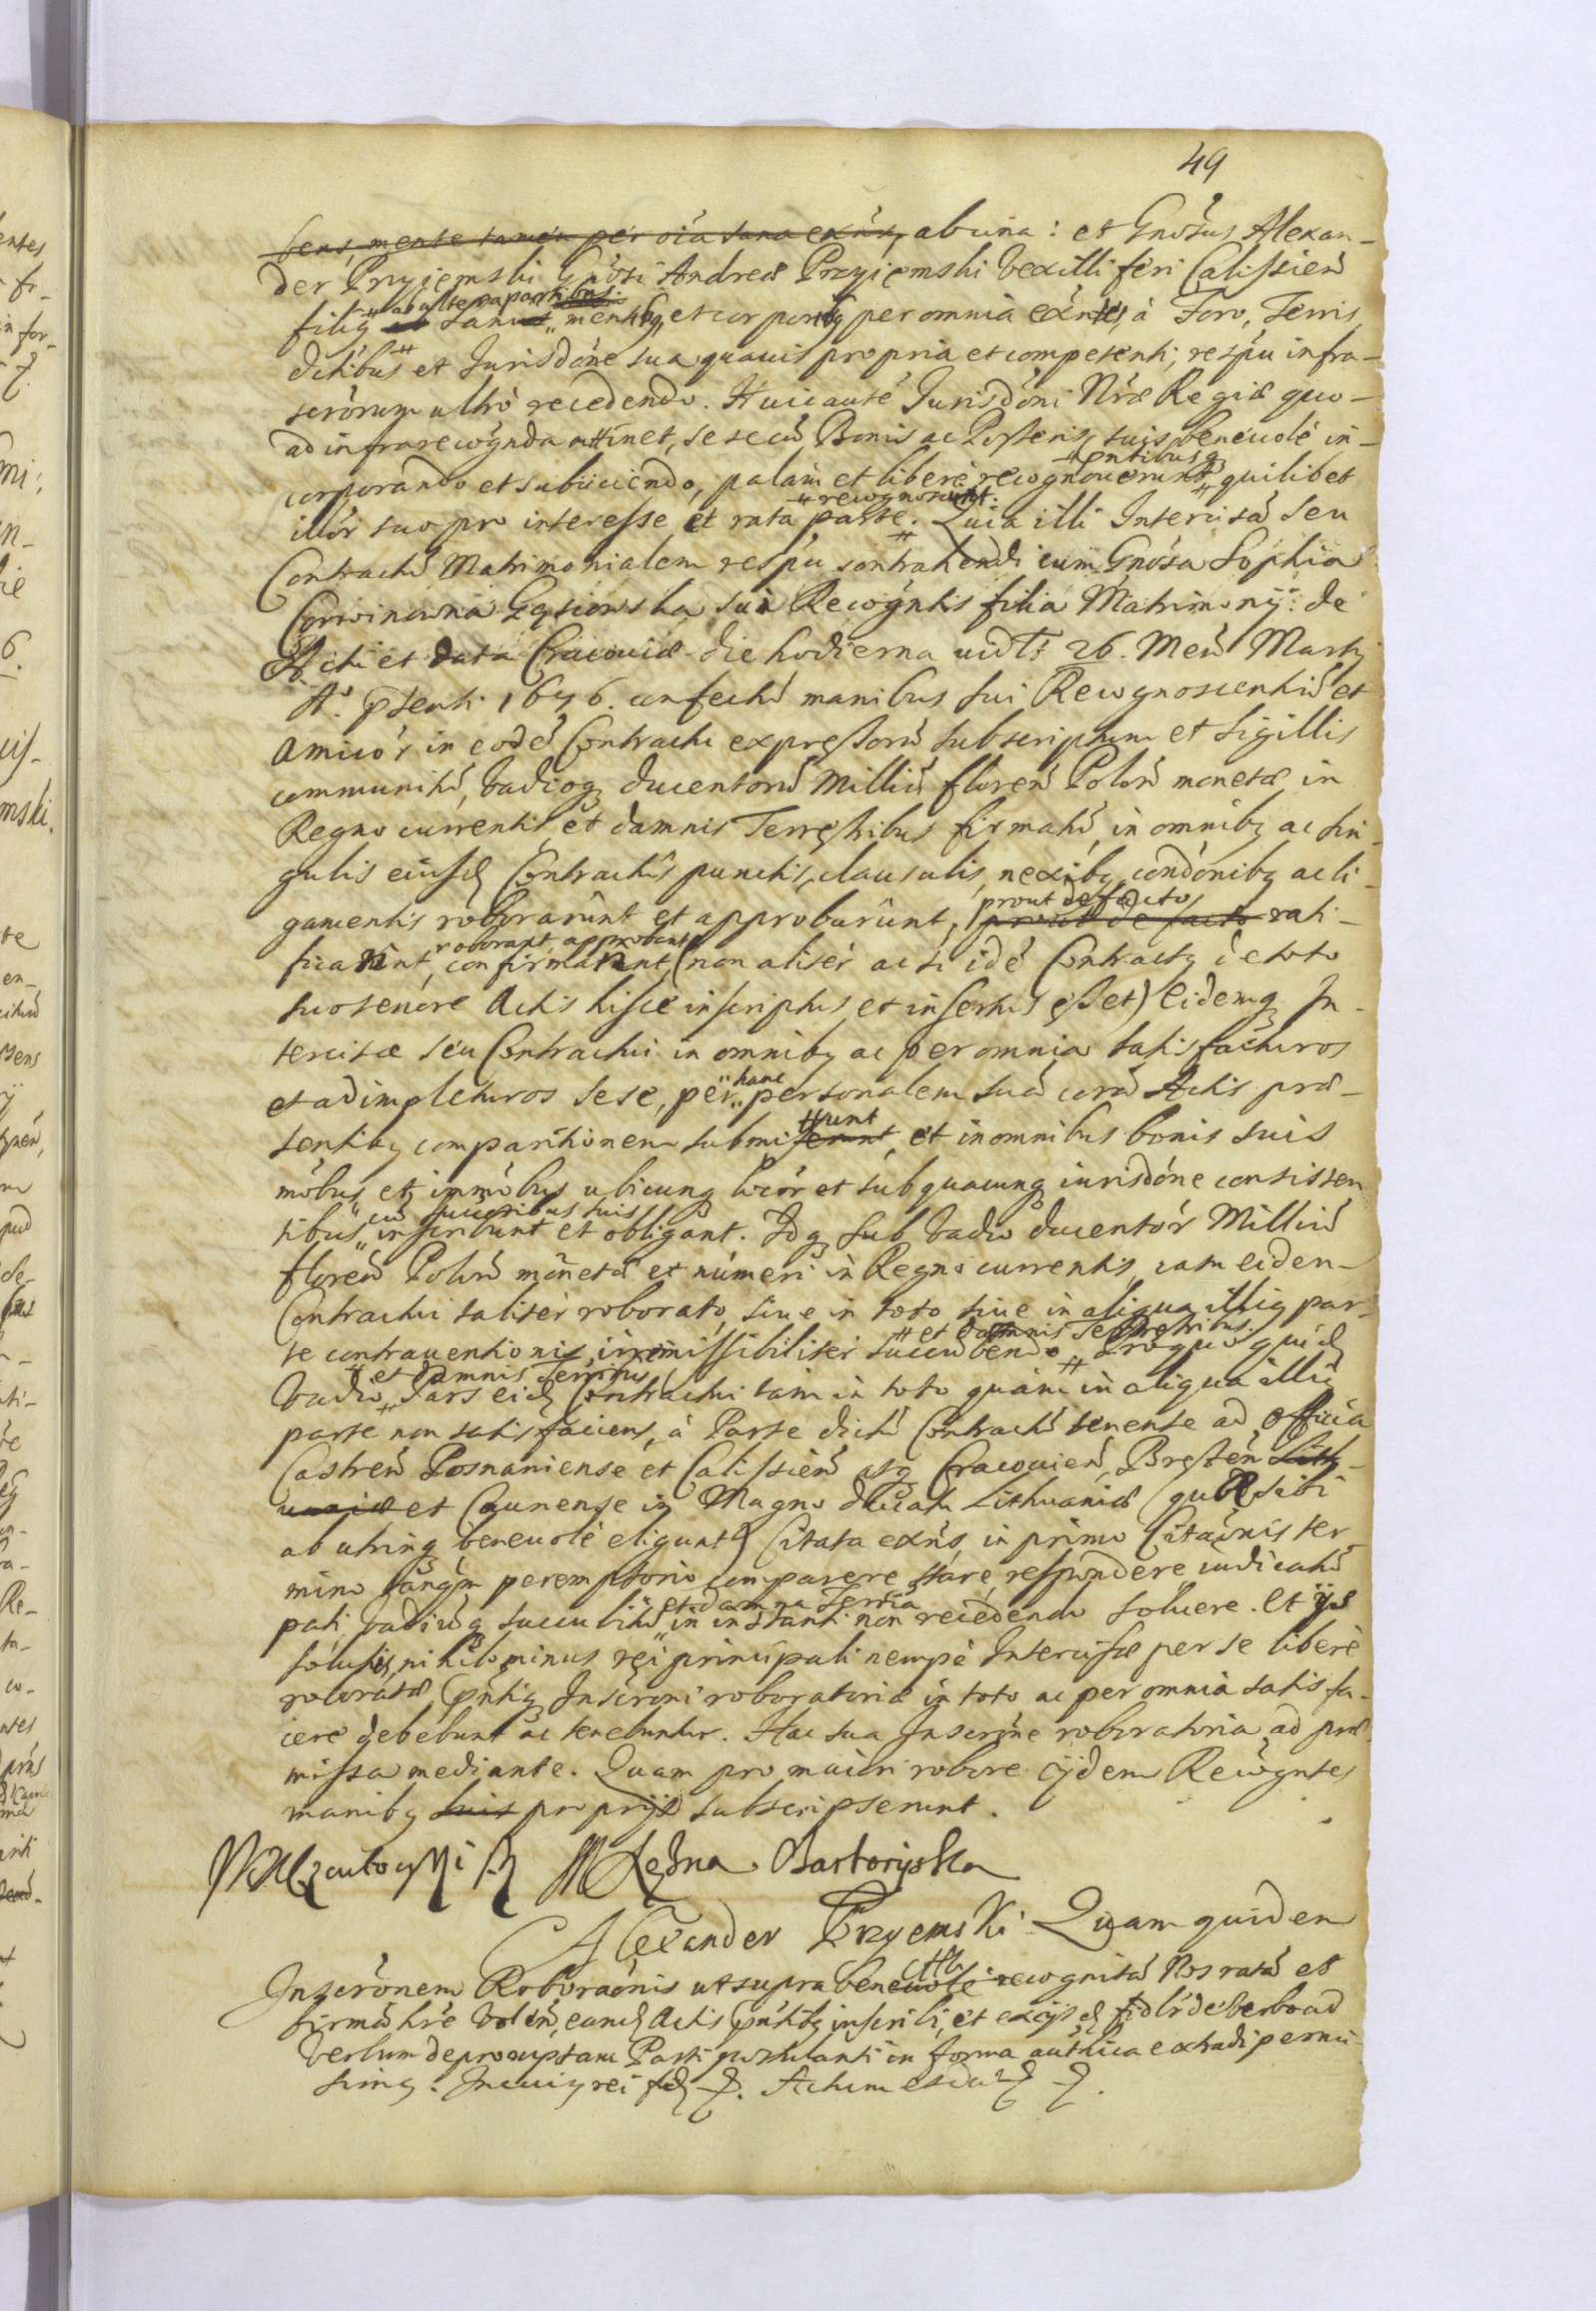 49
sens, mente tamen per oia sana exñs, ab una: et Gnosus Alexan-
der Przyiemski Gñosi Andreæ Przyiemski Vexilliferi Calissień
filiq ab altera partibus sani mentibq et corporibq per omnia exñtes, à Foro, Terris,
dctibus et Jurisdóne sua quavis propria et competenti, respu infra-
scrórum ultrò recedendo. Huic autē Jurisdóni Nræ Regiæ quo-
ad infra recógnda attinet, se secū Bonis ac Posteris suis benevolé in-
corporando et subiiciendo, palàm et liberè recognoverunt quilibet
illór suo pro interesse et rata parte recognoscunt. Quia illi Intercisā seu
Contractū Matrimonialem respu contrahendi cum Gnósa Sophia
Corwinowna Gąsiewska sui Recógntis filia Matrimonij: de
Actu et data Cracoviæ die hodierna vidlt 26. Meń Martij
Aº. pſenti 1646. confectū manibus sui Recognoscentiū et
Amicór in eodē Contractu expressorū subscriptum et Sigillis
communitū, Vadioq ducentorū Milliū floreń Polon̄ monetæ in
Regno currentis et damnis Terrestribus firmatū, in omnibq ac sin-
gulis eiusd Contractûs punctis, clausulis, nexibq condónibq ac li-
gamentis roborarûnt et approbarûnt, prout de facto prout de facto rati-
ficarûnt, roborant, approbant confirmant (non alitèr ac si idē Contractq de toto
suo tenóre Actis hisce inscriptus et insertus esset) Eidemq In-
tercisæ seu Contractui in omnibq ac per omnia satisfacturos
et adimpleturos sese, per hanc personalem suā corā Actis præ-
sentibq comparitionem submiserunt, et in omnibus bonis suis
mobus et immobus ubicunq locór et sub quacunq iurisdóne consisten-
tibus cū successoribus suis inscribunt et obligant. Idq sub Vadio ducentór Milliū
floreń Polon̄ monetæ et númeri in Regno currentis, casu eidem
Contractui talitèr roborato, sive in toto sive in aliqua illiq par-
te contraventionis, irremissibiliter et damnis Terrestribus succumbendo. Pro quo quid
Vadio et damnis Terrtribus Pars eid Contractui tàm in toto quàm in aliqua illiq
parte non satisfaciens, à Parte dictū Contractū tenente ad Officia
Castreń Posnaniense et Calissień asq Cracovień, Bresteń Lith-
uaniæ et Caunense in Magno ducatu Lithuaniæ (quæ sibi
ab utrinq benevolè eligunt) Citata exñs, in primo Citaónis ter-
mino tānq̄m peremptorio comparere, stáre, respondere iudicatū
pati, Vadiūq succubitū et damna Terria in instanti non recedendo solvere. Et ijs
solutis, nihilominus rei principali nempè Intercisæ per se liberè
roboratæ, pñtiq Inscroni roboratoriæ in toto ac per omnia satisfa-
cere debebunt ac tenebuntur. Hac sua Inscróne roboratoria ad præ-
missa mediante. Quam pro maiori robore ijdem Recógntes
manibq suis proprijs subscripserunt.
Xżna Bartoryska
Alexander Przyemski Quam quidem
Inscrónem Roboraónis ut supra benevolè recognitā Nos ratā et
firmā hrē volen̄, eand Actis pñtibq inscribi, et ex ijsd fidlr de verbo ad
Verbum depromptam Parti postulanti in forma authca extradi permi-
simq. In cuiq rei fid. Actum et dat